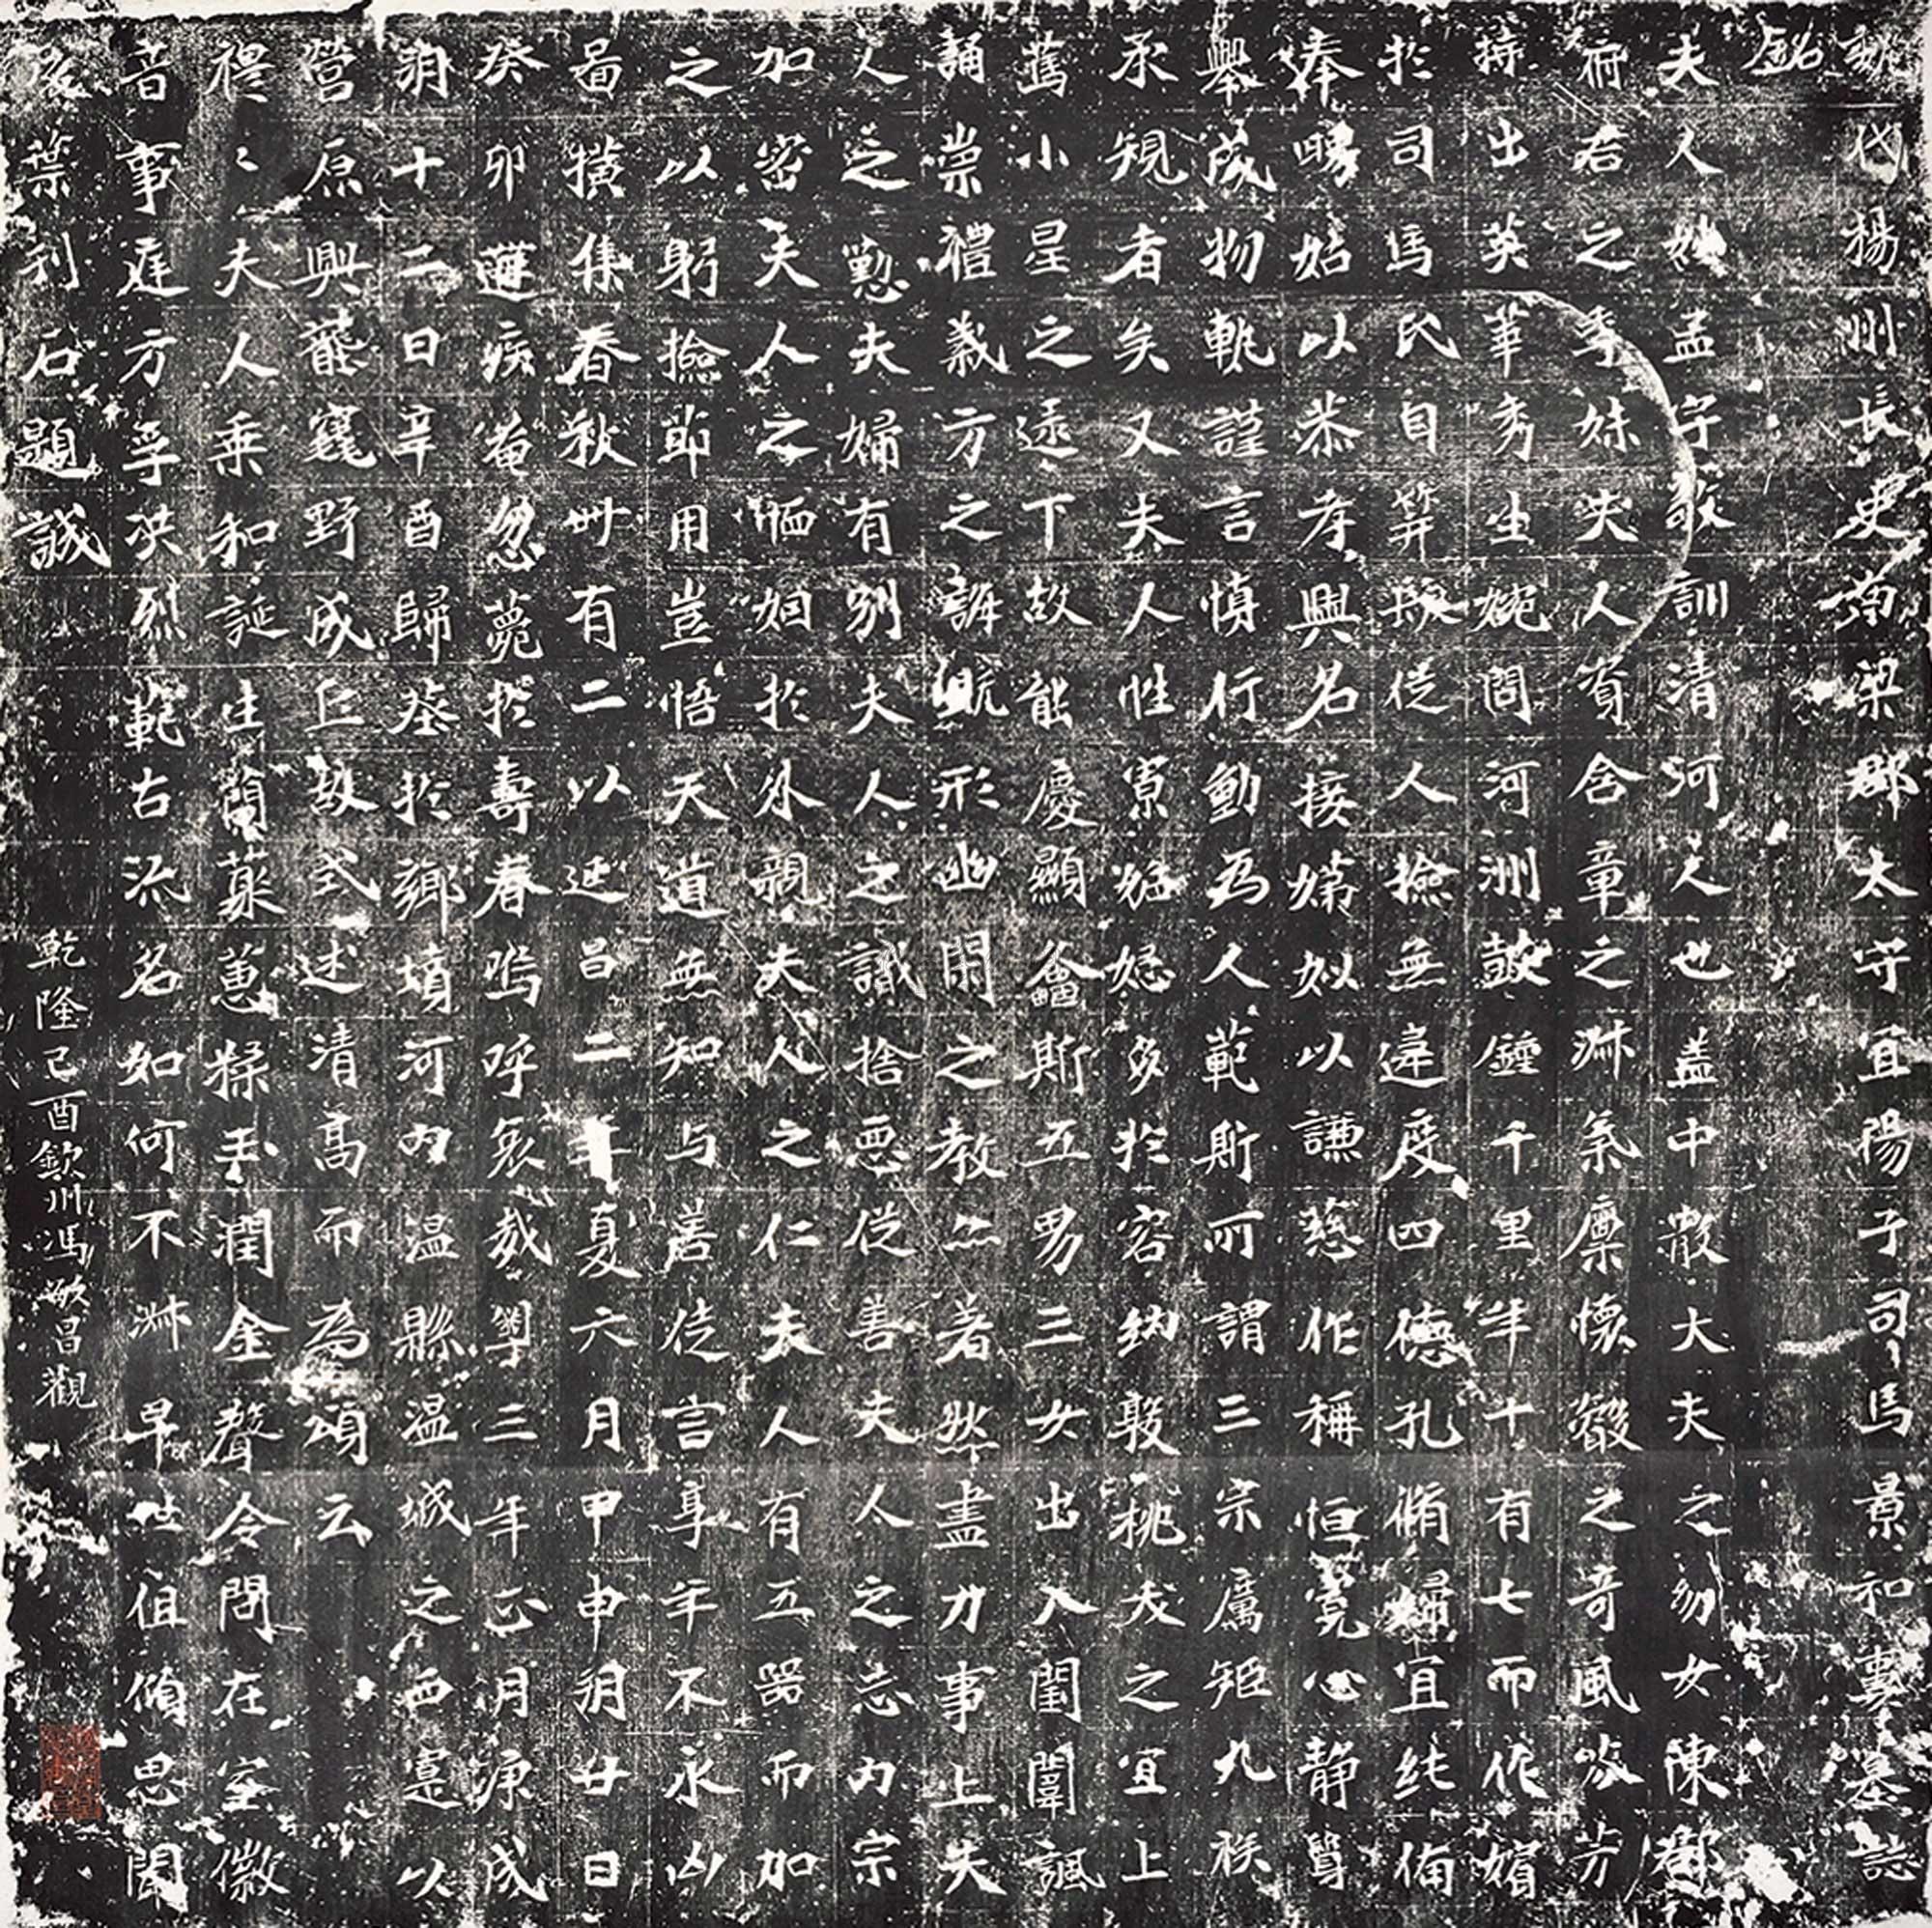 魏代揚州長史南梁郡太守宜陽子司馬景和妻墓誌
銘
夫人姓孟字敬訓清河人也蓋中散大夫之幼女陳郡
府君之季妹夫人資含章之淑氣稟懷叡之奇風芬芳
特出英華秀生婉問河洲鼓鍾千里年十有七而作嬪
於司馬氏自笄髮從人撿無違度四德孔脩婦宜純備
奉舅姑以恭孝興名接娣姒以謙慈作稱恒寬心靜質
舉成物軌謹言慎行動為人範斯所謂三宗厲矩九族
承規者矣又夫人性寡妬娼多於容納敦桃夭之宜上
篤小星之逮下故能慶顯螽斯五男三女出入閨闈諷
誦崇禮義方之誨既形幽閑之教亦著然盡力事上夫
人之懃夫婦有別夫人之識捨惡從善夫人之志內宗
加密夫人之恤姻於外親夫人之仁夫人有五器而加
之以躬撿節用豈悟天道無知与善徒言享年不永凶
圖橫集春秋卌有二以延昌二年夏六月甲申朔廿日
癸卯遘疾奄忽薨於壽春嗚呼哀哉粵三年正月庚戌
朔十二日辛酉歸葬於鄉墳河內溫縣溫城之西以
營原興壟寰野成丘故式述清高而為頌云
穆〻夫人乘和誕生蘭菉蕙糅玉潤金聲令問在室徽
音事庭方孚洪烈範古流名如何不淑早世徂傾思聞
後葉刊石題誠
乾隆己酉欽州馮敏昌觀